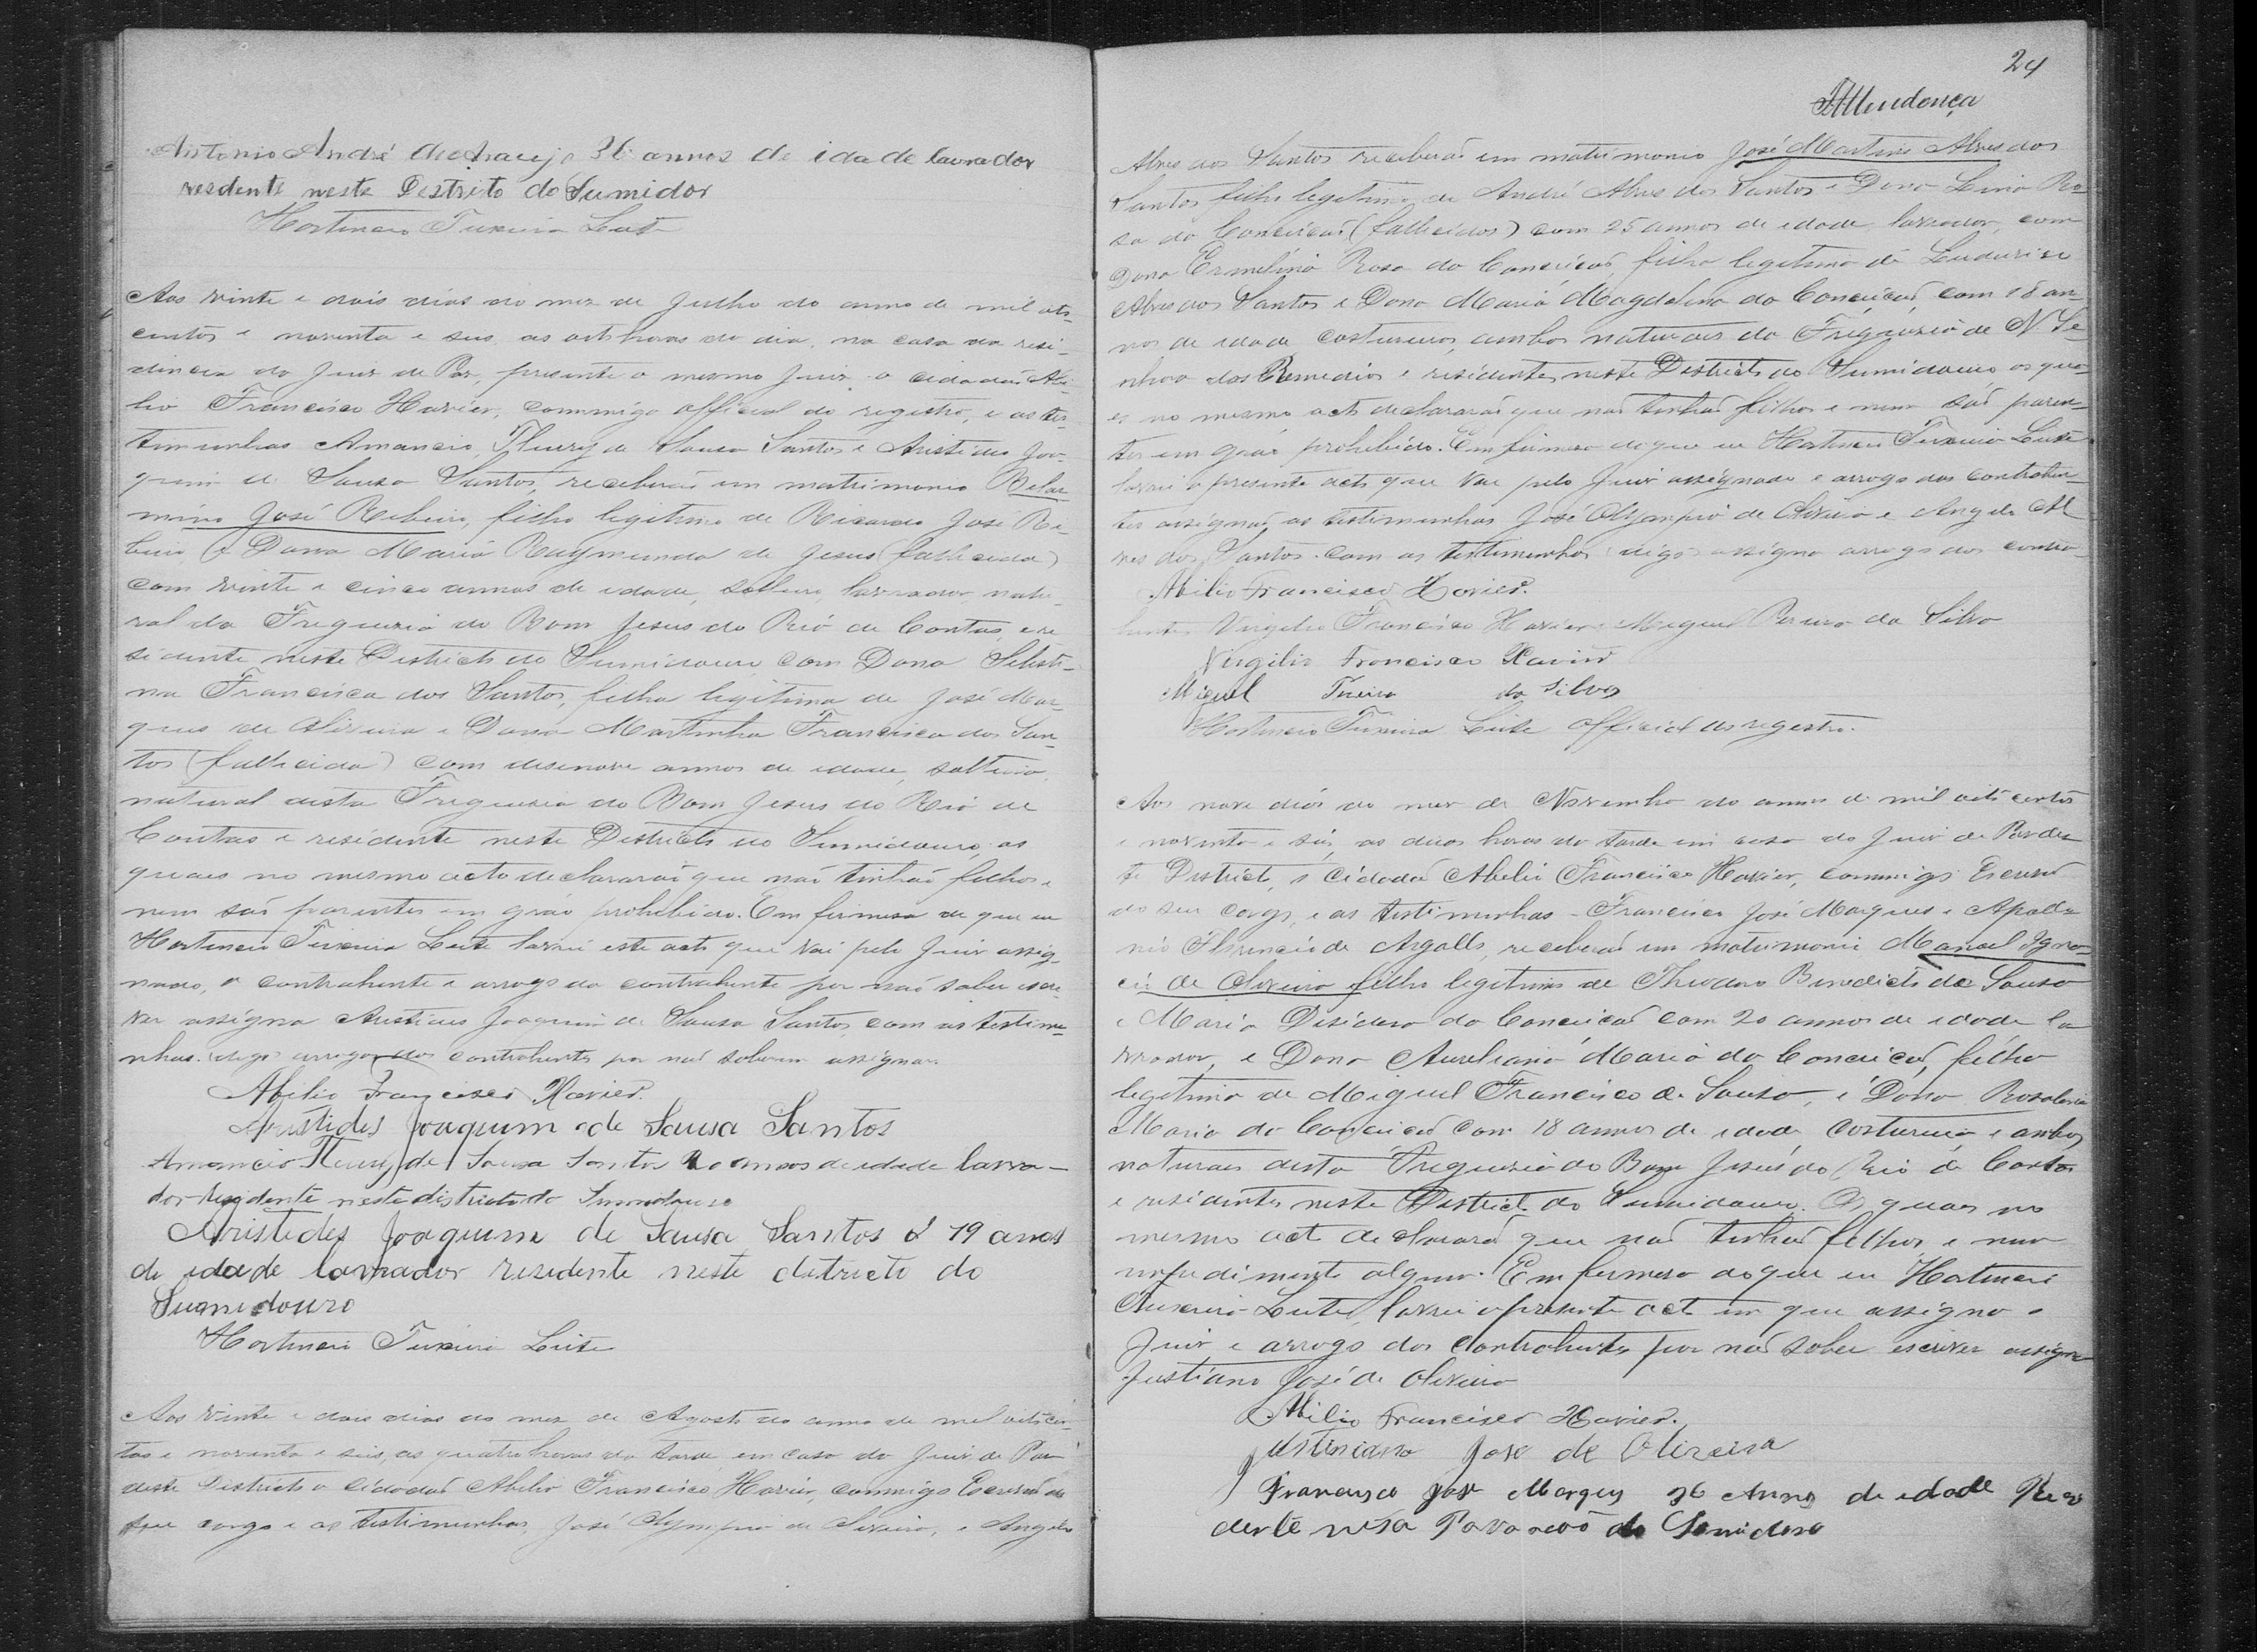 Antonio André de Araujo 36 annos de idade lavrador
resdente neste Destrito do Sumidor
Hortencio Teixeira Leite
Aos vinte e dois dias do mez de Julho do anno de mil oito
centos e noventa e seis, as oito horas do dia, na casa da resi-
dencia do Juiz de Paz, presente o mesmo Juiz o cidadão Abi-
lio Francisco Xavier, commigo official do registro, e as tes-
timunhas Amancio Fleury de Sousa Santos e Aristides Joa-
quim de Sousa Santos, receberão em matrimonio Belar-
mino José Ribeiro, filho legitimo de Ricardo José Ri-
beiro, e Dona Maria Raymunda de Jesus (fallicida)
com vinte e cinco annos de idade, solteiro, lavrador, natu-
ral da Freguezia do Bom Jesus do Rio de Contas, e re
sidente neste Districto do Sumidouro, com Dona Selesti-
na Francisca dos Santos, filha legitima de José Mar-
ques de Oliveira e Dona Martinha Francisca dos San-
tos (fallicida) com desenove annos de idade, solteira,
natural desta Freguesia do Bom Jesus do Rio de
Contas e residente neste Districto do Sumidouro, os
quaes no mesmo acto declararão que não tinhão filhos e
nem são parentes em gráo prohibido. Em firmesa de que eu
Hortencio Teixeira Leite lavrei este acto que vai pelo Juiz assig-
nado, o contrahente e arrogo da contrahente por não saber escre-
ver assigna Aristides Joaquim de Sousa Santos, com as testimu-
nhas. digo arrogo dos contrahentes por não saberem assignar.
Abilio Francisco Xavier.
Aristides Joaquim de Sousa Santos
Amancio Fleury de Sousa Santos 20 annos de idade lavra-
dor Rezidente neste districto do Sumidouro
Aristides Joaquim de Sousa Santos d 19 anos
de idade lavrador residente neste detricto do
Sumidouro
Hortencio Teixeira Leite
Aos vinte e dois dias do mez de Agosto do anno de mil oitocen
tos e noventa e seis, as quatro horas da tarde em casa do Juiz de Paz
deste Districto o Cidadão Abilio Francisco Xavier, commigo Escrivão do
seu cargo e as testimunhas, José Olympio de Oliveira, e Angelo
24
Mendonça
Alves dos Santos receberão em matrimonio José Martins Alves dos
Santos filho legitimo de André Alves dos Santos e Dona Lina Ro-
sa da Conceicão (fallicidos) com 25 annos de idade, lavrador, com
Dona Ermelina Rosa da Conceicão, filha legitima de
Alves dos Santos e Dona Maria Magdalena da Conceicão, com 18 an-
nos de idade costureira, ambos naturaes da Freguezia de N. Se-
nhora dos Remedios e residentes neste Districto do Sumidouro os qua-
es no mesmo acto declararão que não tinhão filhos e nem são paren-
tes em gráo prohibido. Em firmesa do que eu Hortencio Teixeira Leite
lavrei o presente acto que vae pelo Juiz assignado e arrogo dos contrahen-
tes assignão as testimunhas José Olympio de Oliveira e Angelo Al
ves dos Santos. com as testimunhas digo assigna arrogo dos contra-
Abilio Francisco Xavier.
hentes Virgilio Francisco Xavier e Miguel Pereira da Silva
Virgilio Francisco Xavier
Miguel Pereira da Silva
Hortencio Teixeira Leite official do registro.
Aos nove dias do mez de Novembro do anno de mil oito centos
e noventa e seis, as duas horas da tarde em casa do Juiz de Paz des-
te Districto, o Cidadão Abilio Francisco Xavier, commigo Escrivão
do seu cargo, e as testimunhas Francisco José Marques e Apollo
nio Florencio de Argollo, receberão em matrimonio Manoel Igna-
cio de Oliveira filho legitimo de Theodoro Benedicto de Sousa
e Maria Desidera da Conceicão com 20 annos de idade la
vrador, e Dona Aureliana Maria da Conceicão, filha
legitima de Miguel Francisco de Sousa, e Dona Rosalina
Maria da Conceicão com 18 annos de idade, costureira e ambos
naturaes desta Freguezia do Bom Jesus do Rio de Contas
e residentes neste Districto do Sumidouro. Os quaes no
mesmo acto declararão que não tinhão filhos e nem
impedimento algum. Em firmesa do que eu Hortencio
Teixeira Leite, lavrei o presente acto em que assigna o
Juiz e arrogo dos contrahentes por não saber escrever assigna
Justiano José de Oliveira
Abilio Francisco Xavier.
Justiniano Jose de Oliveira
Francisco Jose Marques 36 Annos de idade Rezi
dente nesta Pavoacão do Sumidoro